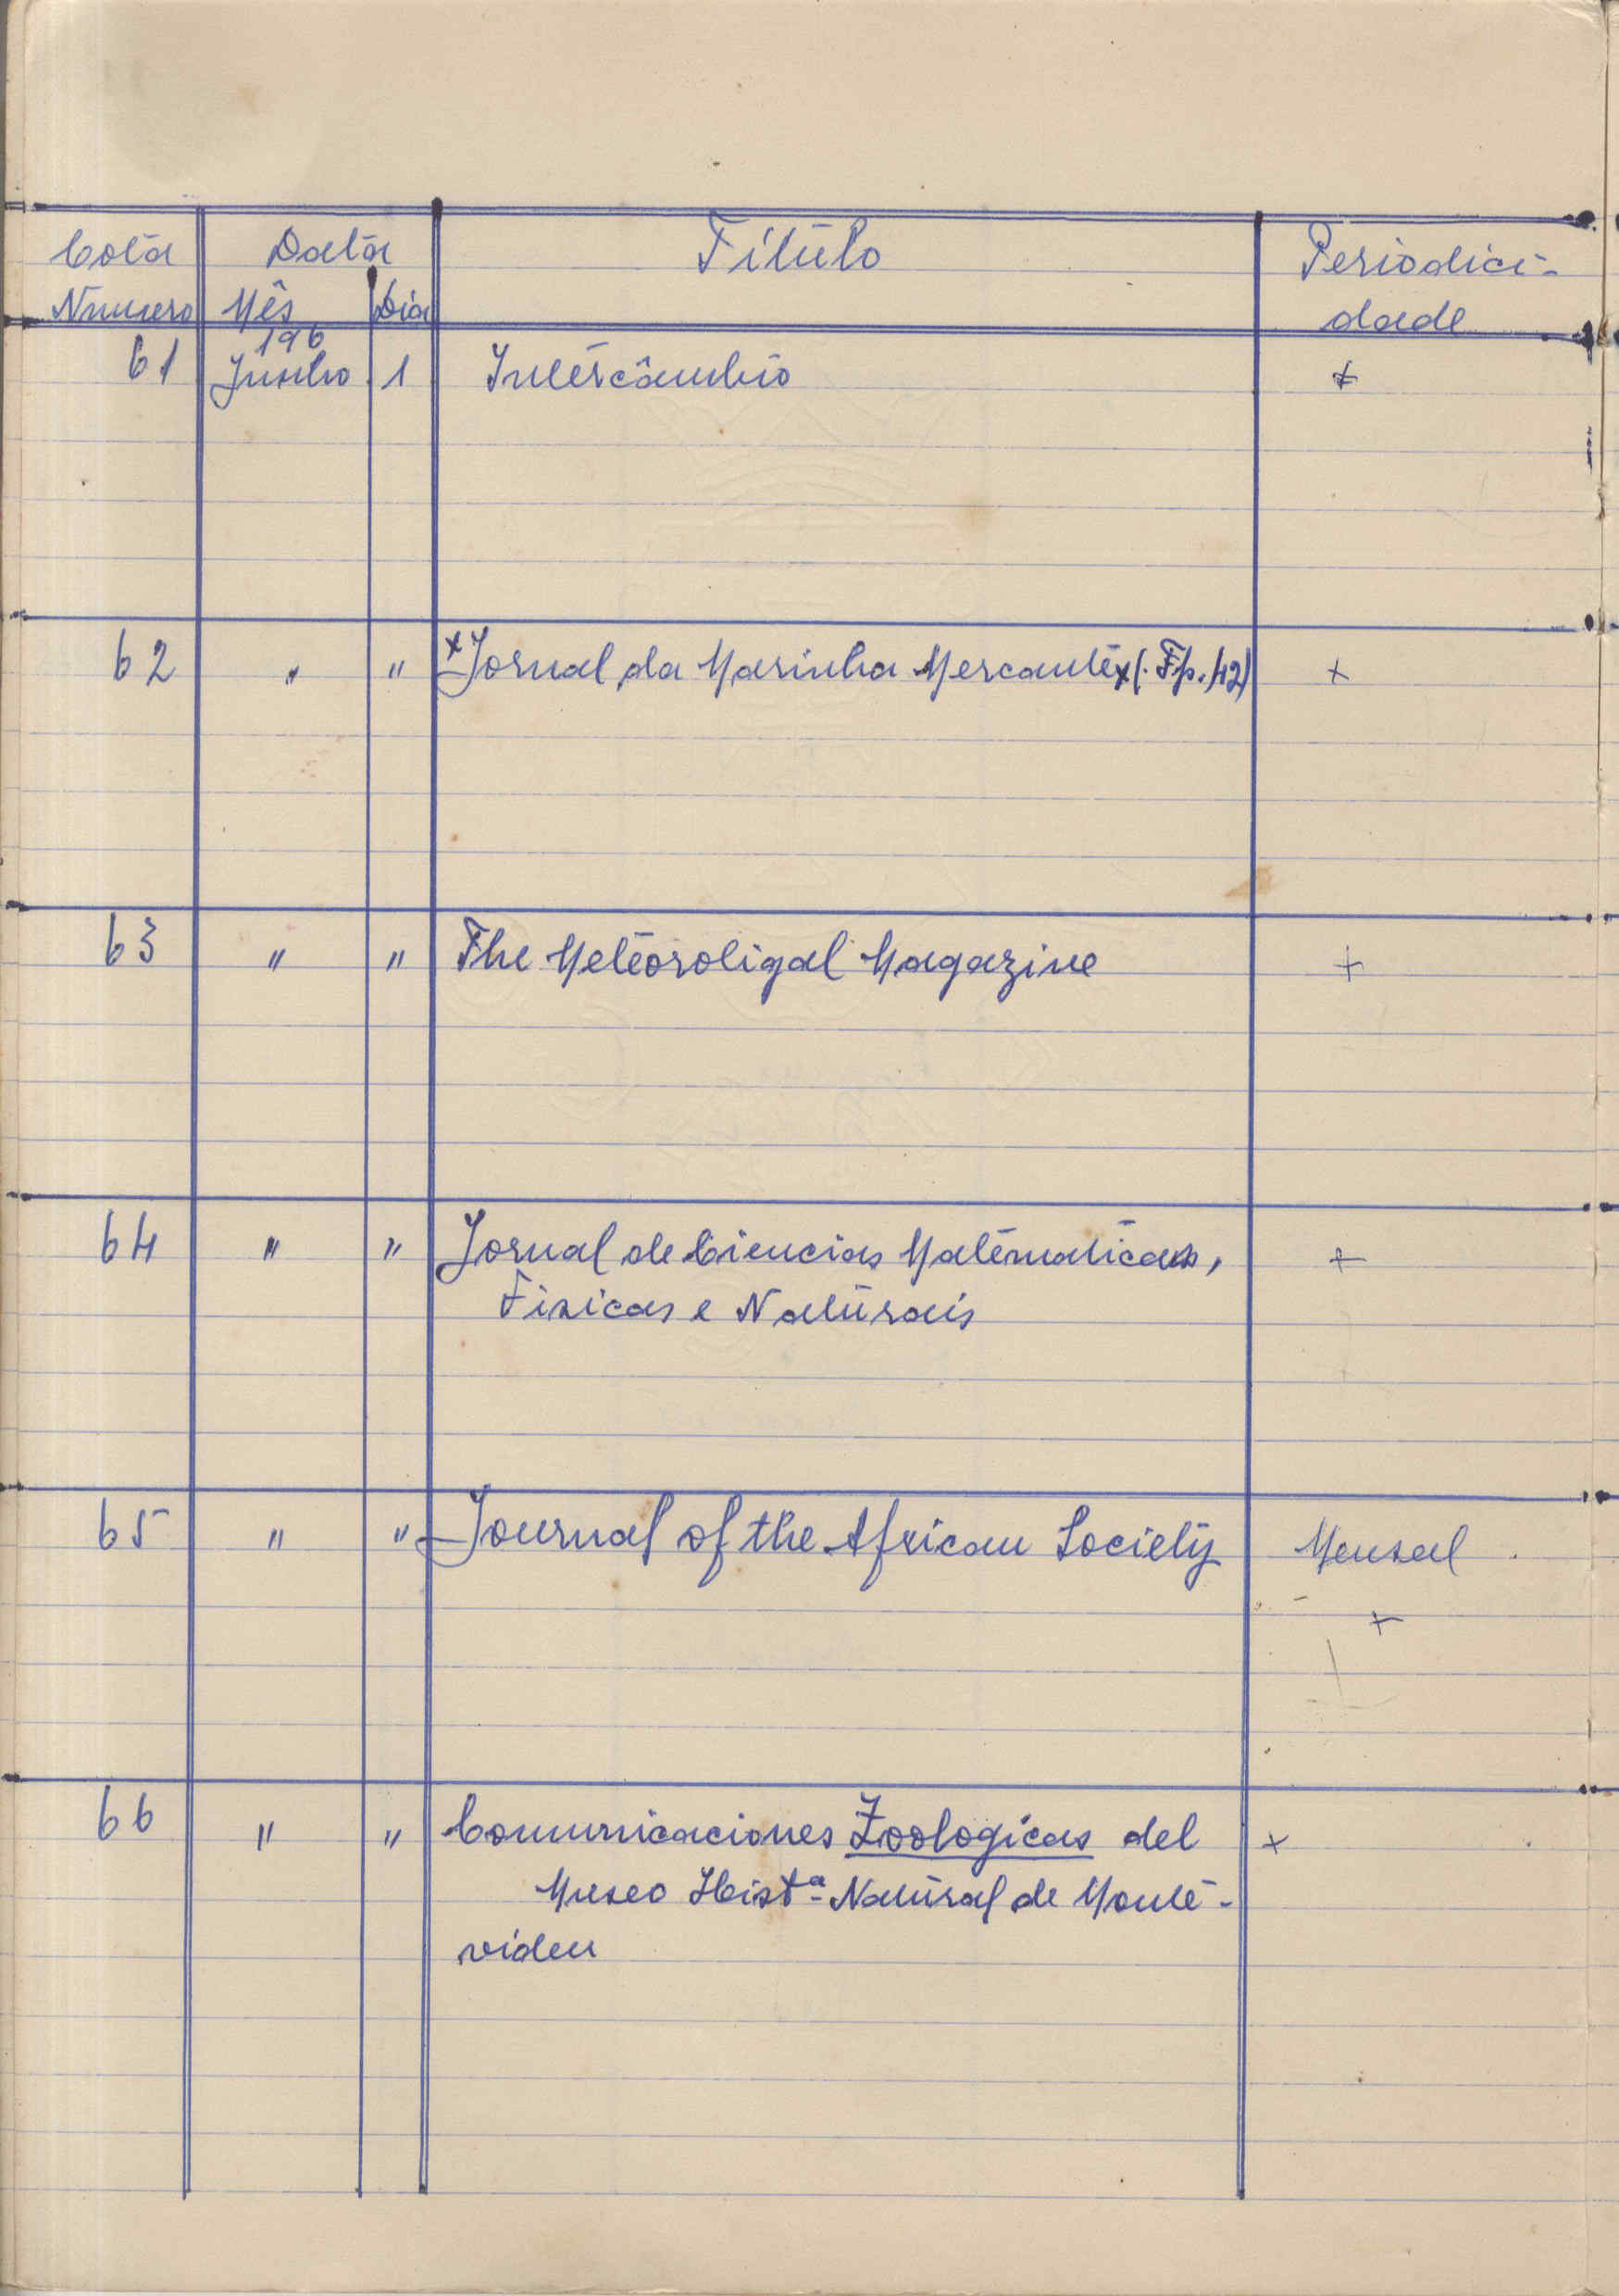 Cota Data Título Periodici-
Numero Mês Dia dade
196
61 Junho 1 Intercâmbio +
62 " " x Jornal da Marinha Mercante x (. Fp. 42) +
63 " " The Meteoroligal Magazine +
64 " " Jornal de Ciencias Matematicas, +
Fisicas e Naturais
65 " " Journal of the African Society Mensal
+
66 " " Comunicaciones Zoologicas del +
Museo Histª Natural de Monte-
video